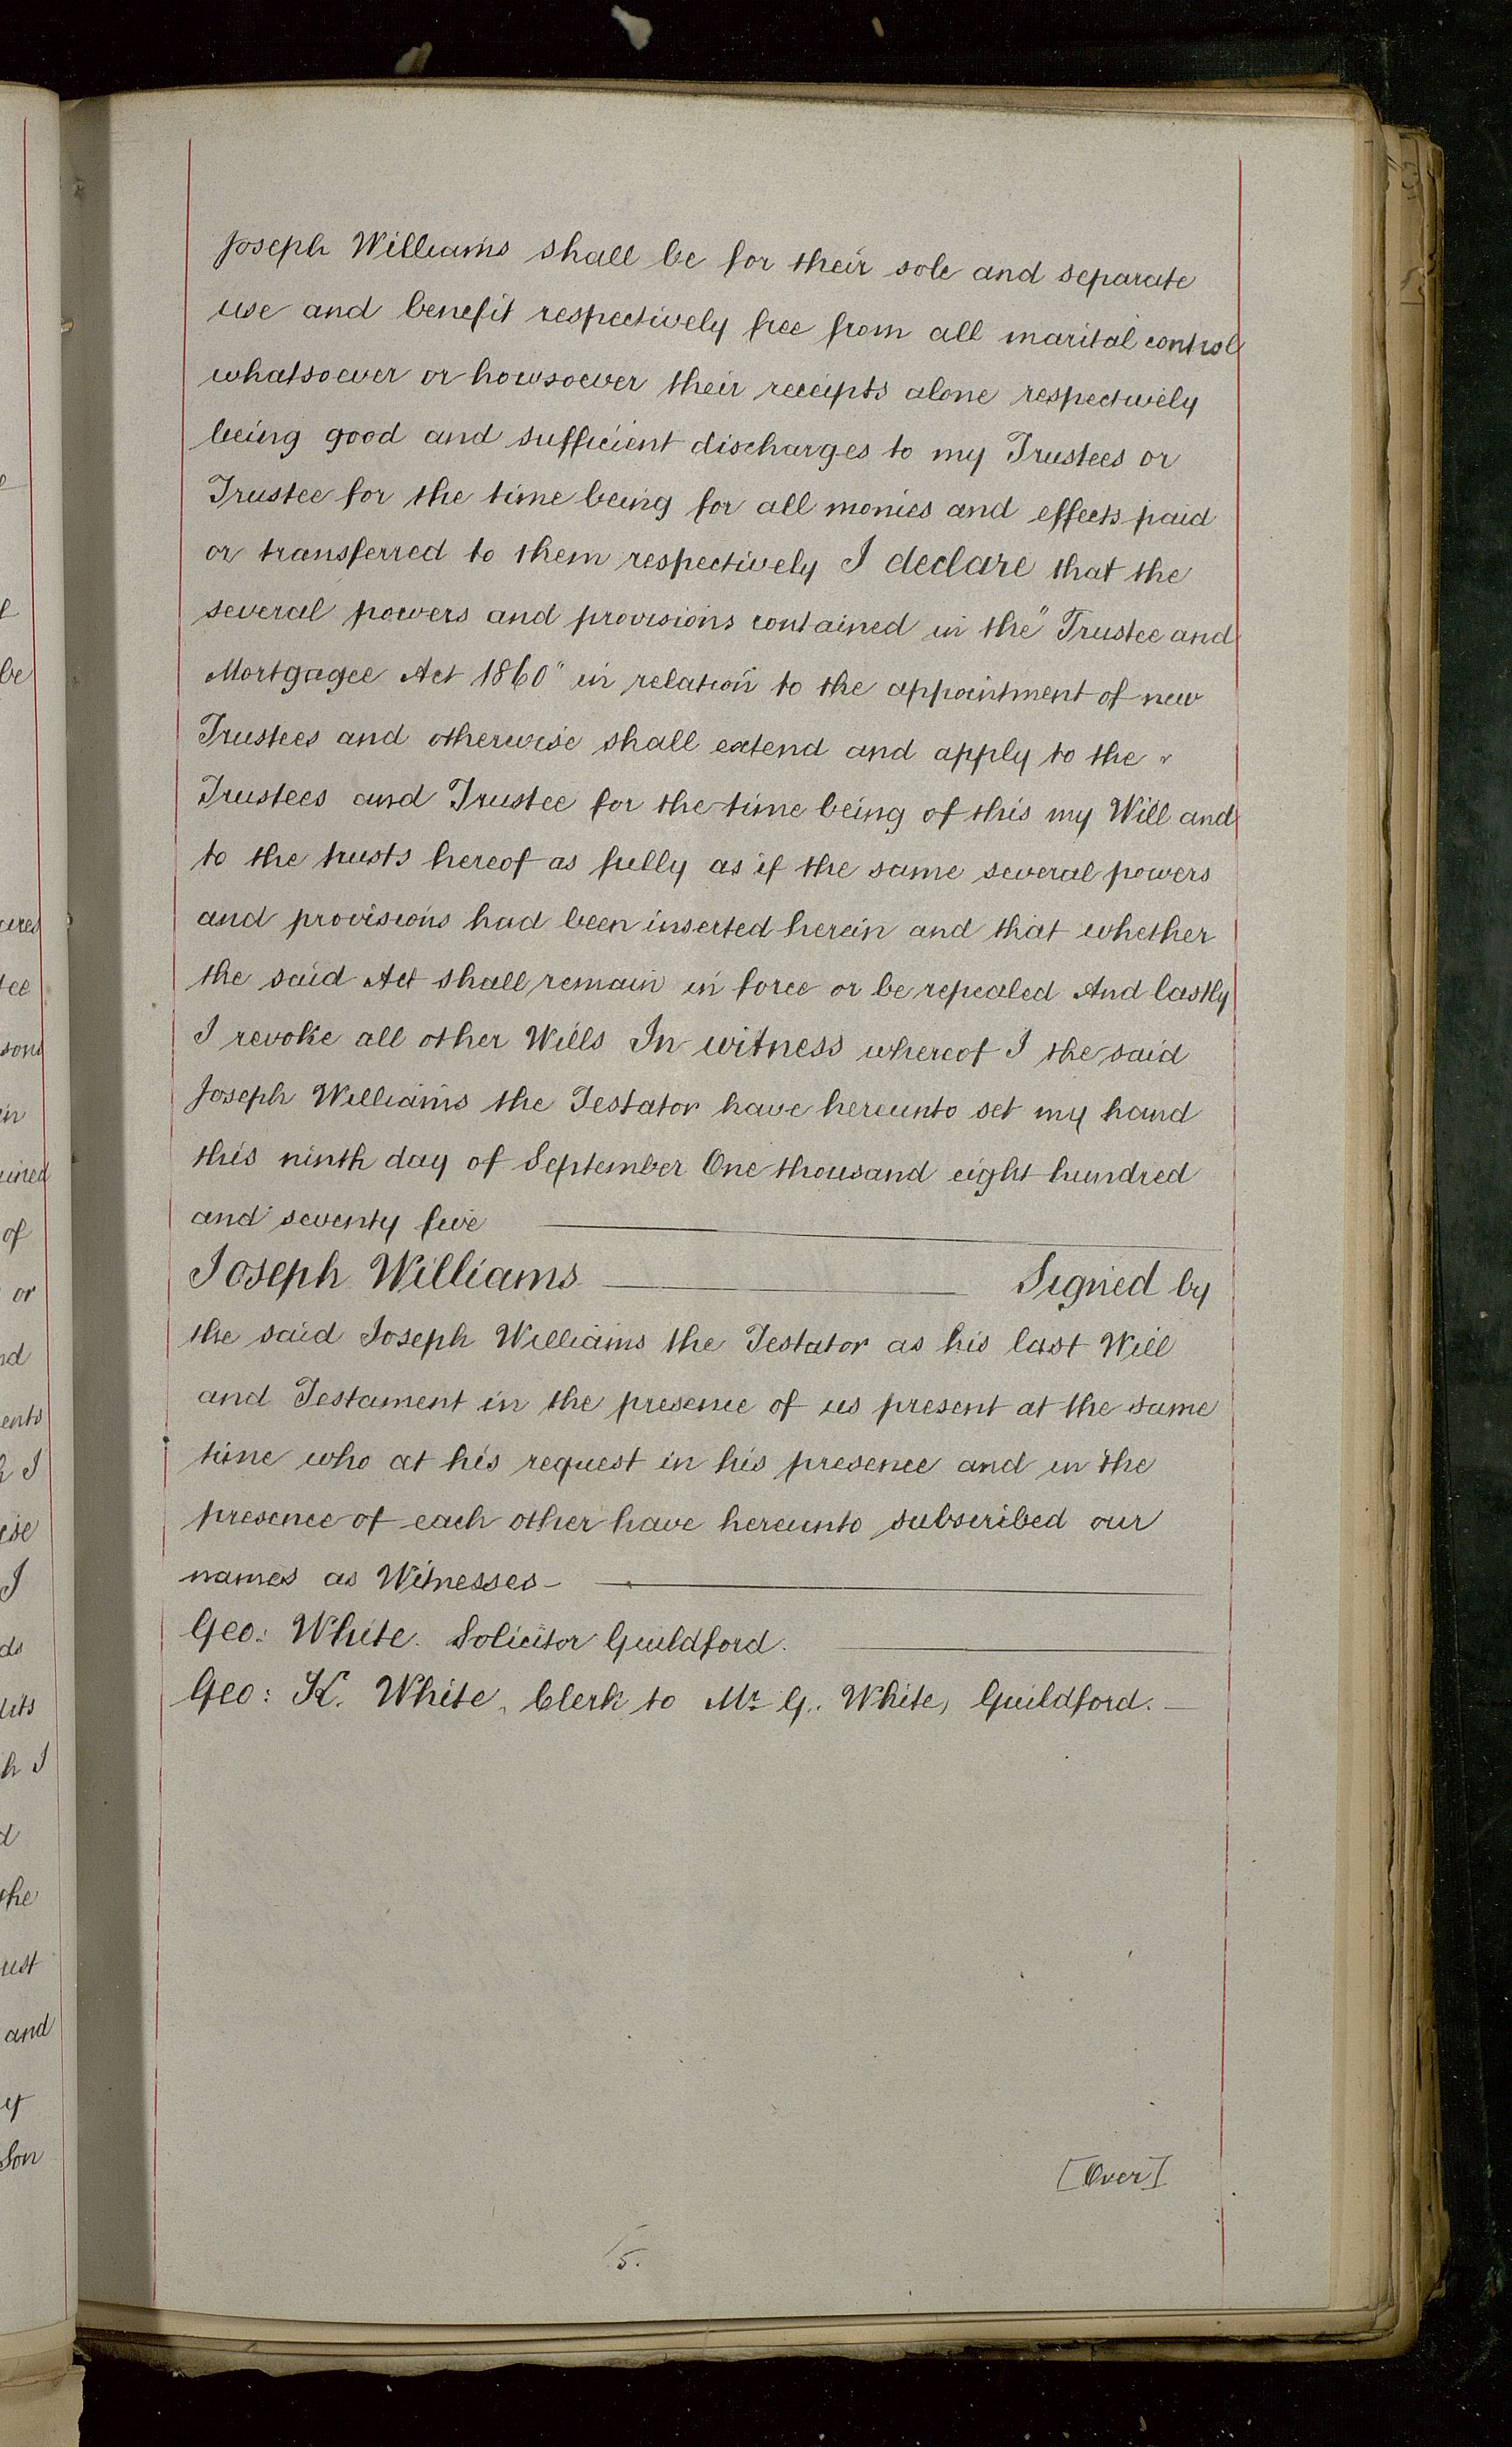 Joseph Williams shall be for their sole and separate
use and benefit respectively free from all marital control
whatsoever or howsoever their receipts alone respectively
being good and sufficient discharges to my Trustees or
Trustee for the time being for all monies and effects paid
or transferred to them respectively I declare that the
several powers and provisions contained in the "Trustee and
Mortgagee Act 1860" in relation to the appointment of new
Trustees and otherwise shall extend and apply to the
Trustees and Trustee for the time being of this my Will and
to the trusts hereof as fully as if the same several powers
and provisions had been inserted herein and that whether
the said Act shall remain in force or be repealed And lastly
I revoke all other Wills In witness whereof I the said
Joseph Williams the Testator have hereunto set my hand
this ninth day of September One thousand eight hundred
and seventy five
Joseph Williams Signed by
the said Joseph Williams the Testator as his last Will
and Testament in the presence of us present at the same
time who at his request in his presence and in the
presence of each other have hereunto subscribed our
names as Witnesses
Geo: White. Solicitor Guildford.
Geo: K. White, Clerk to Mr G. White, Guildford.
[Over]
5.